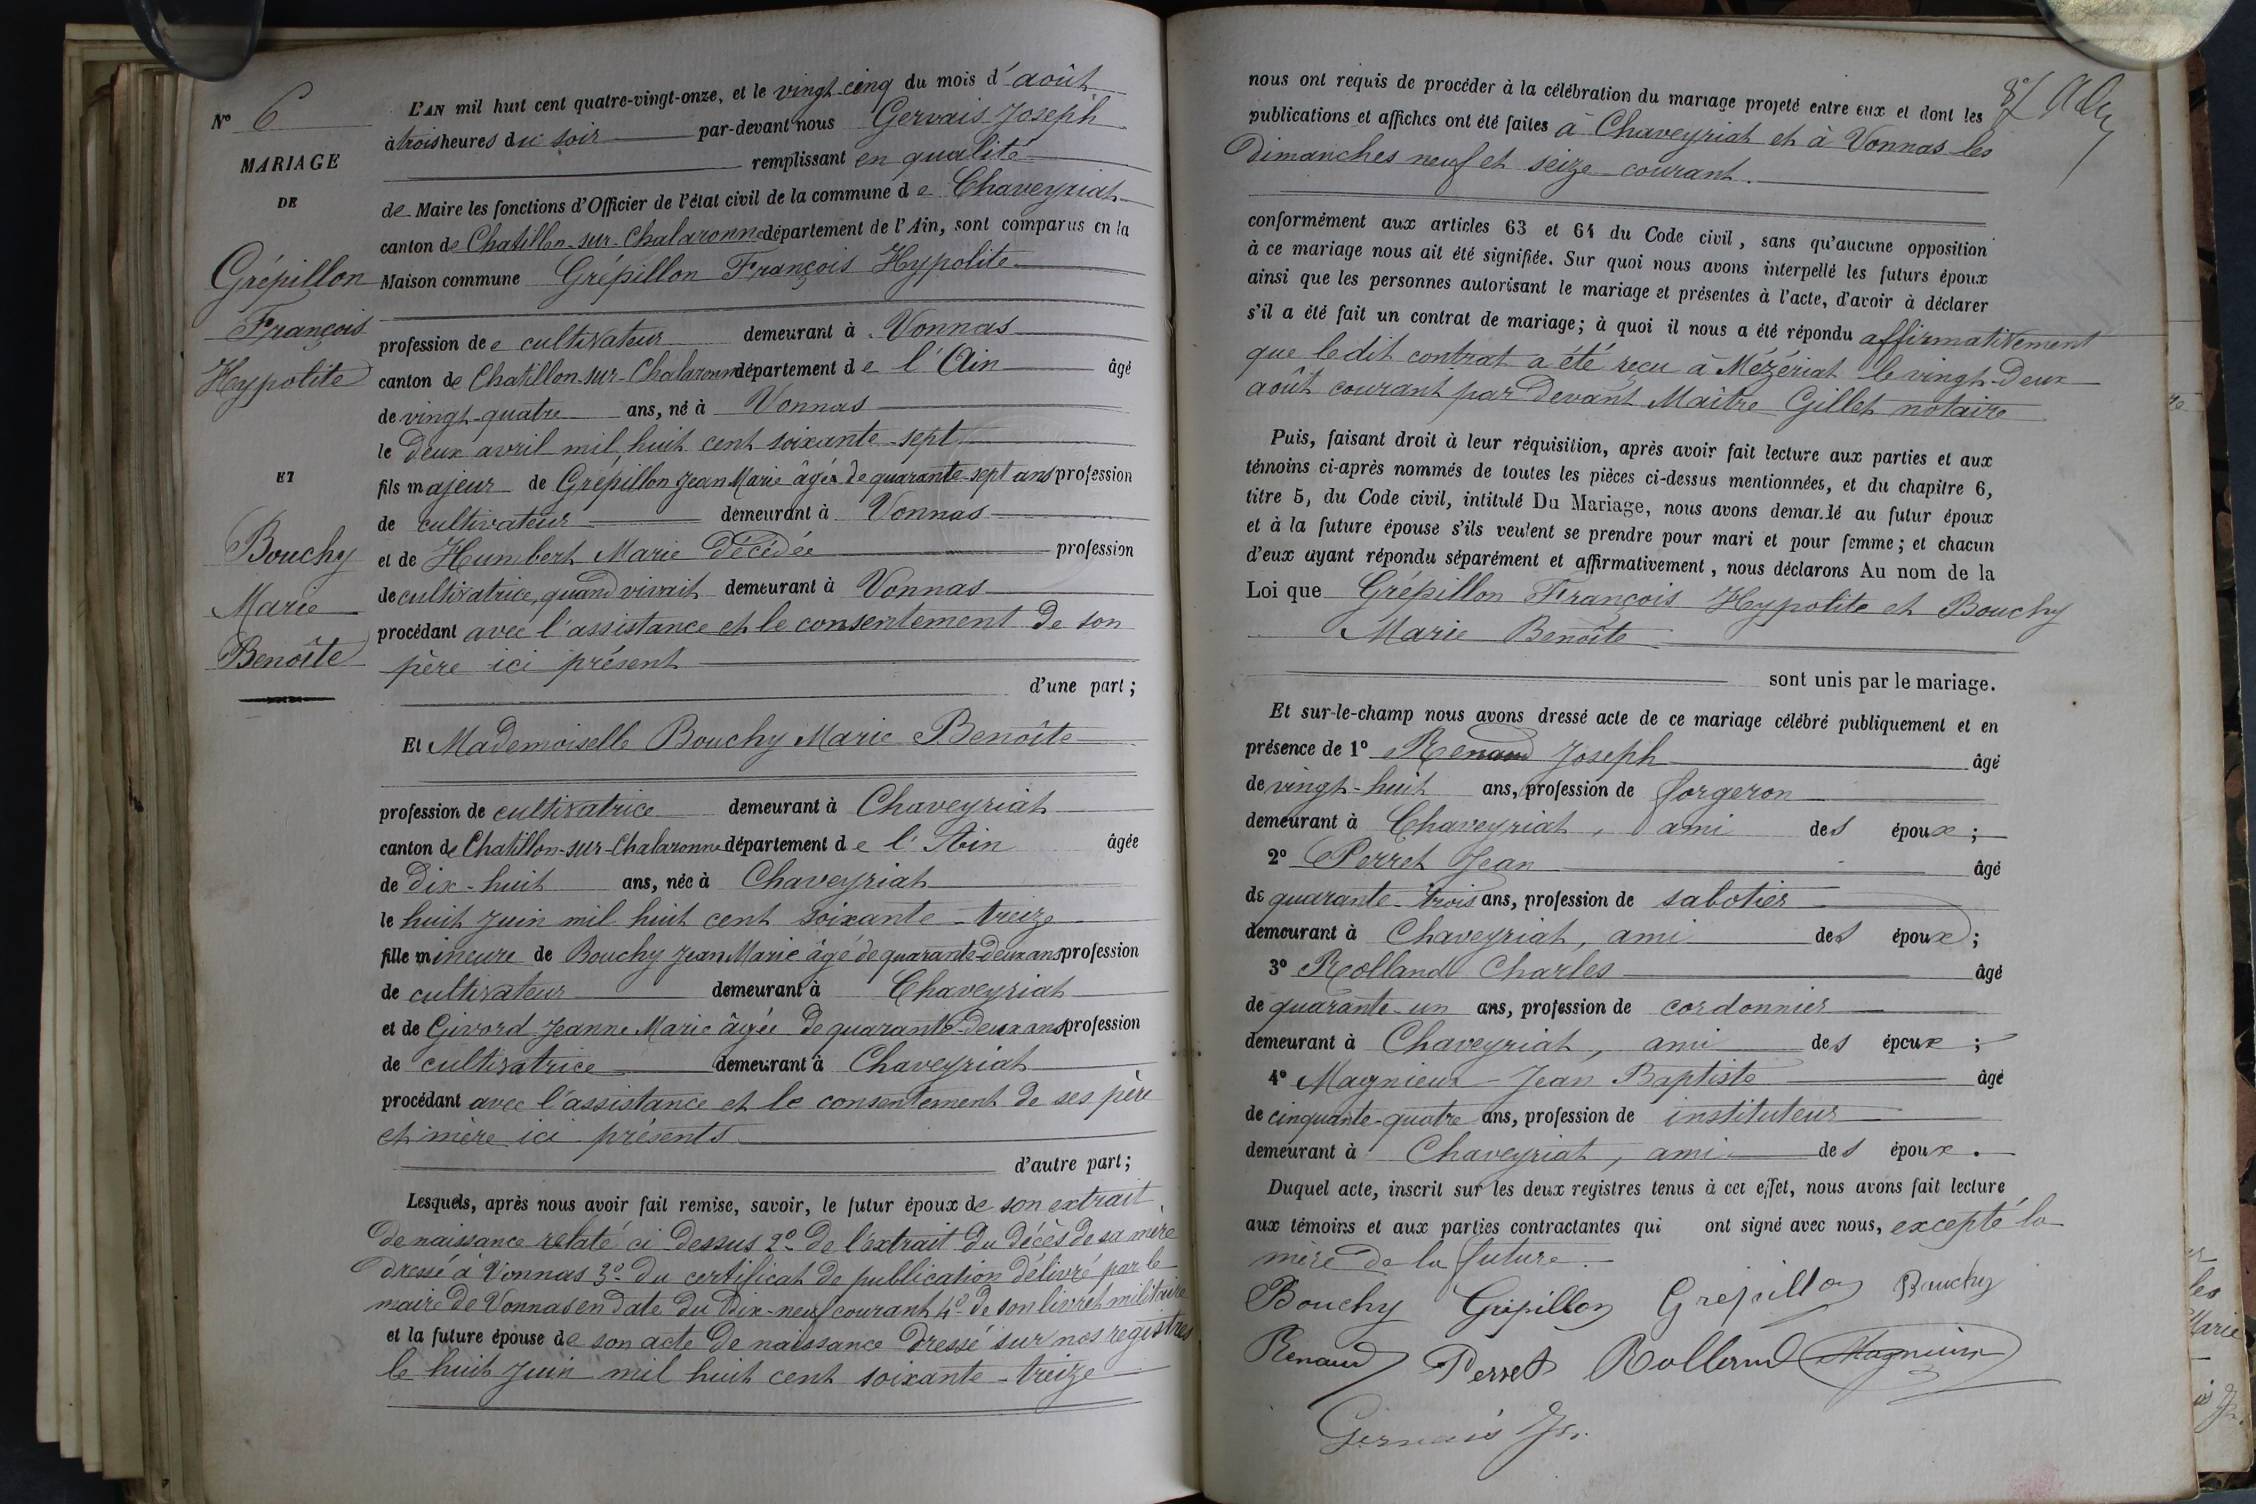 N° 6
MARIAGE
DE
Grépillon
François
Hypolite
ET
Bouchy
Marie
Benoîte
L'AN mil huit cent quatre-vingt-onze, et le vingt-cinq du mois d'août
à trois heures du soir par-devant nous Gervais Joseph
remplissant en qualité
de Maire les fonctions d'Officier de l'état civil de la commune de Chaveyriat
canton de Chatillon-sur-Chalaronne département de l'Ain, sont comparus en la
Maison commune Grépillon François Hypolite
profession de e cultivateur demeurant à Vonnas
canton de Chatillon-sur-Chalaronne département de l'Ain âgé
de vingt-quatre ans, né à Vonnas
le deux avril mil huit cent soixante-sept
fils majeur de Grépillon Jean Marie âgé de quarante-sept ans profession
de cultivateur demeurant à Vonnas
et de Humbert Marie décédée profession
de cultivatrice, quand vivait demeurant à Vonnas
procédant avec l'assistance et le consentement de son
père ici présent
d'une part;
Et Mademoiselle Bouchy Marie Benoîte
profession de cultivatrice demeurant à Chaveyriat
canton de Chatillon-sur-Chalaronne département de l'Ain âgée
de dix-huit ans, née à Chaveyriat
le huit juin mil huit cent soixante-treize
fille mineure de Bouchy Jean Marie âgé de quarante-deux ans profession
de cultivateur demeurant à Chaveyriat
et de Givord Jeanne Marie âgée de quarante-deux ans profession
de cultivatrice demeurant à Chaveyriat
procédant avec l'assistance et le consentement de ses père
et mère ici présents
d'autre part;
Lesquels, après nous avoir fait remise, savoir, le futur époux de son extrait
de naissance relaté ci dessus 2° de l'extrait du décès de sa mère
dressé à Vonnas 3° du certificat de publication délivré par le
maire de Vonnas en date du dix-neuf courant 4° de son livret militaire
et la future épouse de son acte de naissance dressé sur nos registres
le huit juin mil huit cent soixante-treize
nous ont requis de procéder à la célébration du mariage projeté entre eux et dont les
publications et affiches ont été faites à Chaveyriat et à Vonnas les
dimanches neuf et seize courant.
conformément aux articles 63 et 64 du Code civil, sans qu'aucune opposition
à ce mariage nous ait été signifiée. Sur quoi nous avons interpellé les futurs époux
ainsi que les personnes autorisant le mariage et présentes à l'acte, d'avoir à déclarer
s'il a été fait un contrat de mariage; à quoi il nous a été répondu affirmativement
que ledit contrat a été reçu à Mézériat le vingt-deux
août courant par devant Maître Gillet notaire
Puis, faisant droit à leur réquisition, après avoir fait lecture aux parties et aux
témoins ci-après nommés de toutes les pièces ci-dessus mentionnées, et du chapitre 6,
titre 5, du Code civil, intitulé Du Mariage, nous avons demandé au futur époux
et à la future épouse s'ils veulent se prendre pour mari et pour femme; et chacun
d'eux ayant répondu séparément et affirmativement, nous déclarons Au nom de la
Loi que Grépillon François Hypolite et Bouchy
Marie Benoîte
sont unis par le mariage.
Et sur-le-champ nous avons dressé acte de ce mariage célébré publiquement et en
présence de 1° Renaud Joseph âgé
de vingt-huit ans, profession de forgeron
demeurant à Chaveyriat, ami des époux;
2° Perret Jean âgé
de quarante-trois ans, profession de sabotier
demeurant à Chaveyriat, ami des époux;
3° Rolland Charles âgé
de quarante-un ans, profession de cordonnier
demeurant à Chaveyriat, ami des époux;
4° Magnieux Jean Baptiste âgé
de cinquante-quatre ans, profession de instituteur
demeurant à Chaveyriat, ami des époux.
Duquel acte, inscrit sur les deux registres tenus à cet effet, nous avons fait lecture
aux témoins et aux parties contractantes qui ont signé avec nous, excepté la
mère de la future.
Bouchy Grépillon Grepillon Bouchy
Renaud Perret Rolland Magnieux
Gervais Jh.